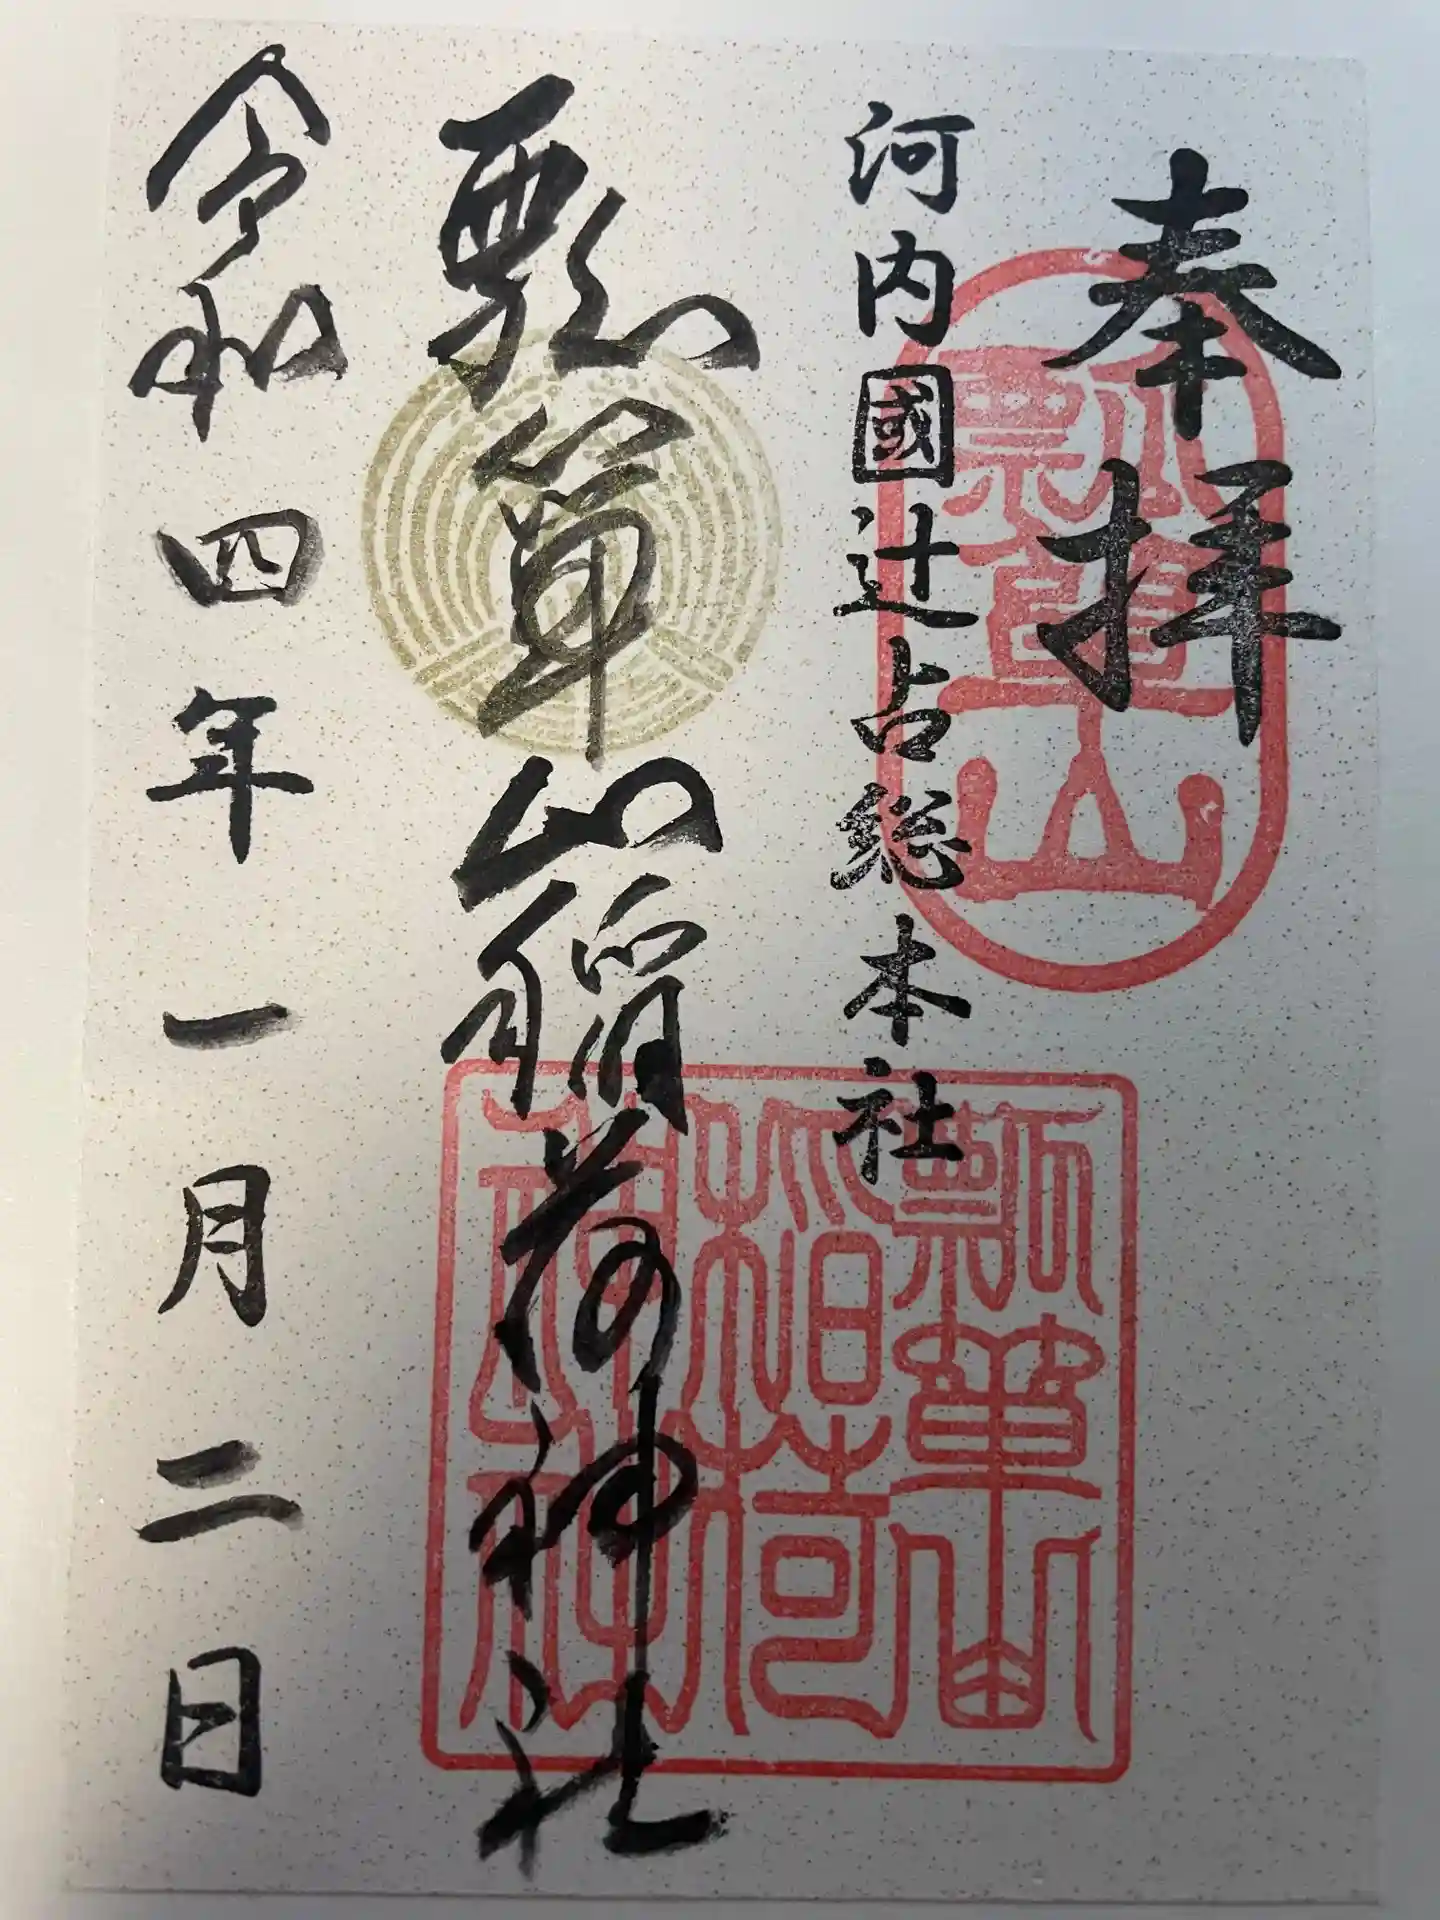 奉拝
河内國辻占総本社
瓢箪山稲荷神社
令和四年一月二日
瓢箪山